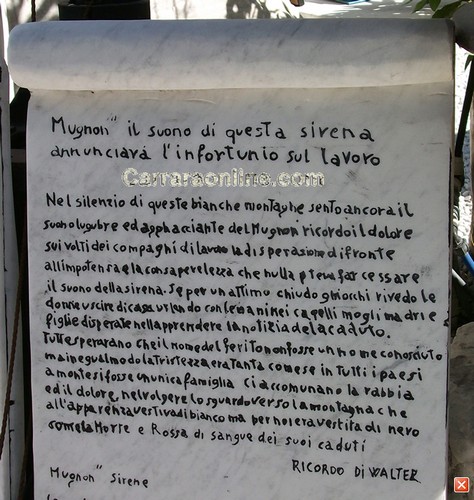 Mugnon" il suono di questa sirena
annunciava l'infortunio sul lavoro
Carraraonline.com
Nel silenzio di queste bianche montaghe sento ancora il
suono lugubre ed agghiacciante del Mugnon ricordo il dolore
sui volti dei compaghi di lavoro la disperazione di fronte
all impotenza e la consapevolezza che nulla poteva far cessare
il suono della sirena. Se per un attimo chiudo gli occhi rivedo le
donne uscire di casa urlendo con le mani nei capelli mogli madri e
figlie disperate nell apprendere la notizia del caduto.
Tutte speravano che il nome del ferito non fosse un nome conosciuto
ma in egual modo la tristezza era tanta come se in tutti i paesi
a monte si fosse un unica famiglia ci accomunano la rabbia
ed il dolore, nel volgere lo sguardo verso la montagna che
all'apparenza vestiva di bianco ma per noi era vestita di nero
come la Morte e Rossa di sangue dei suoi caduti
RICORDO Di WALTER
Mugnon" Sirene